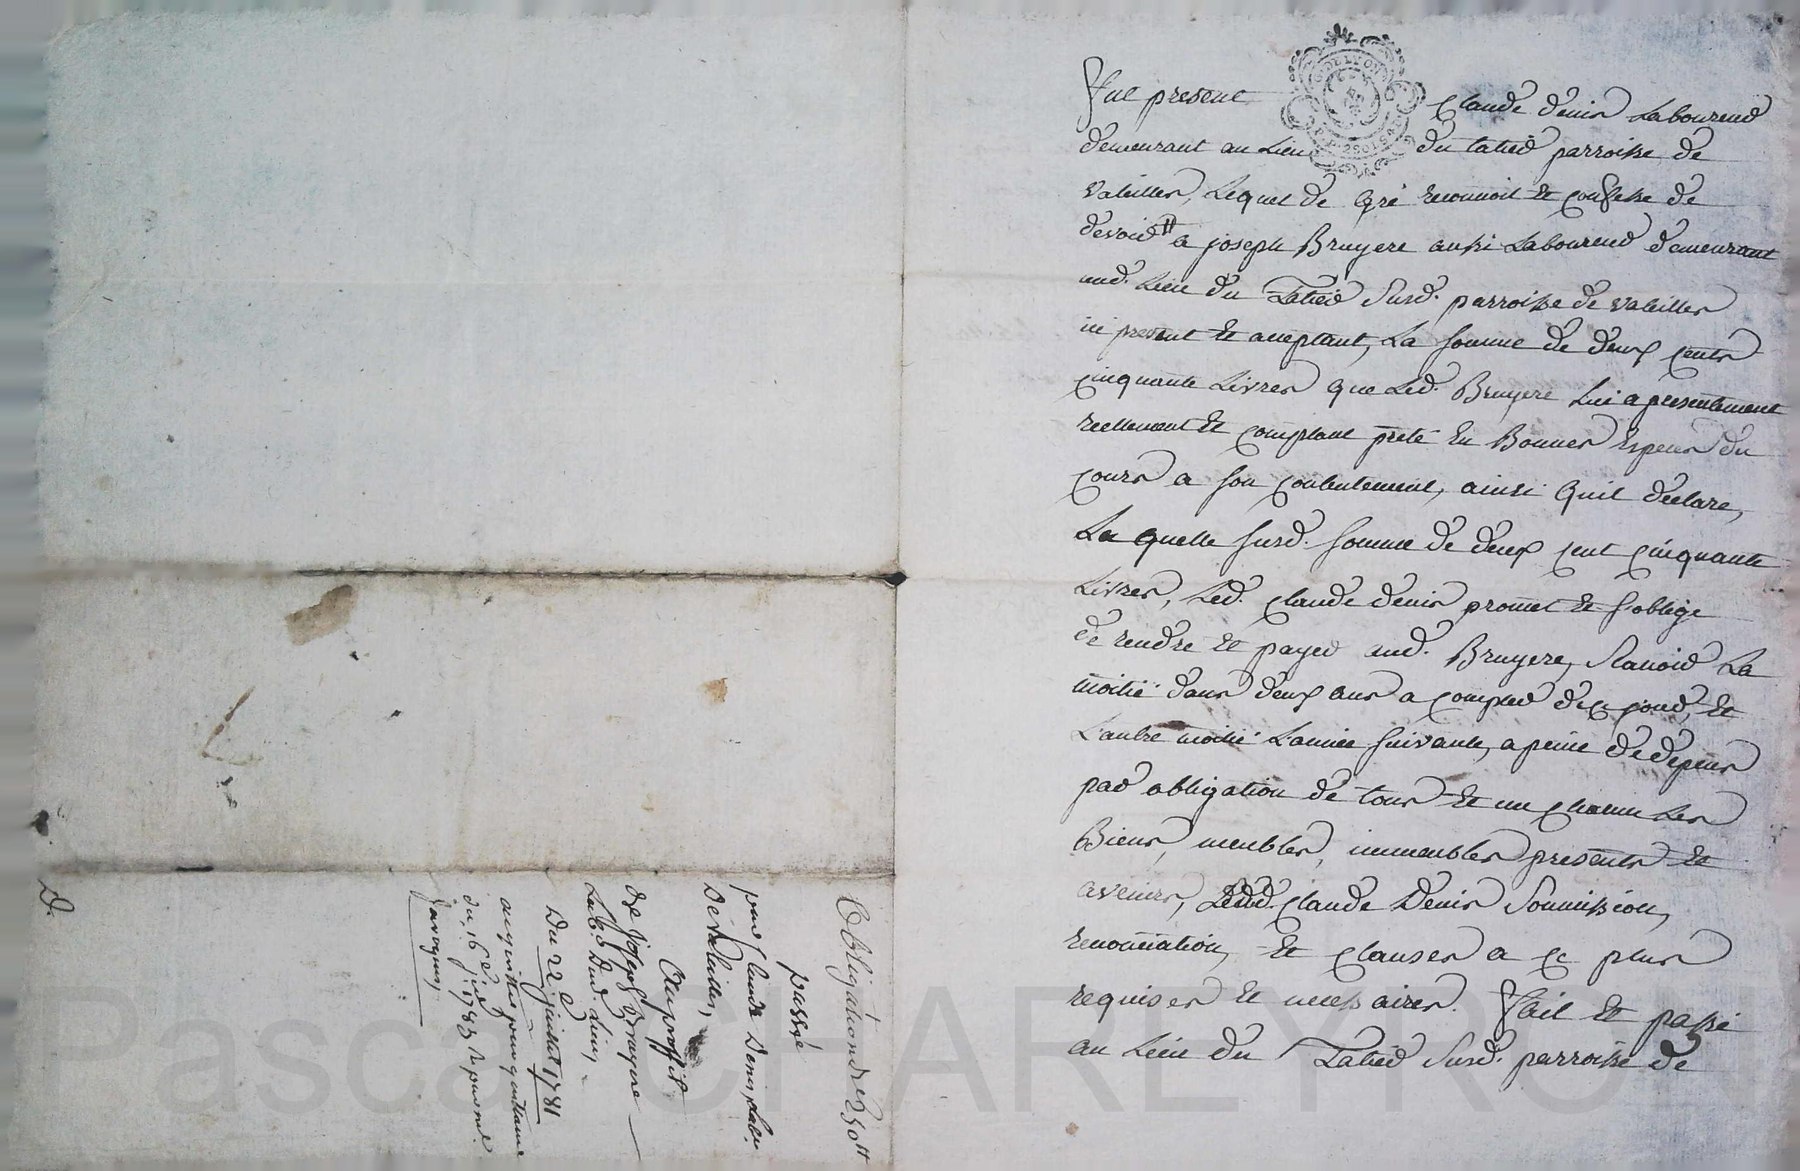 Fut present Claude Denis Laboureur
demeurant au Lieu du tatier parroisse de
valeilles, Lequel de gré reconnoit et confesse de
devoir à joseph Bruyere aussi Laboureur demeurant
aud. Lieu du Tatier susd. parroisse de valeilles
ici present et acceptant, La somme de deux cents
cinquante Livres que Led. Bruyere Lui a présentement
reellement et comptant preté en Bonnes Especes du
cours a son contentement, ainsi quil déclare,
La quelle susd. somme de deux cent cinquante
Livres, Led. Claude denis promet et s'oblige
de rendre et payer aud. Bruyere, scavoir La
moitié dans deux ans a compter de ce jour, et
L'autre moitié L'année suivante, a peine de depens
par obligation de tous et un chacun Les
Biens, meubles, immeubles presents et
avenirs, dud. Claude Denis soumission,
renonciation, et clauses a ce plus
requises et necessaires. Fait et passé
au Lieu du Tatier susd. parroisse de
Obligation de 250tt
passée
par Claude Denis, Labr.
De valeilles,
Au proffit
de Joseph Bruyere
Lab. Dud. Lieu,
Du 22e juillet 1781
acquittée par quittance
du 16e 1783
D.
Pascal CHAREYRON